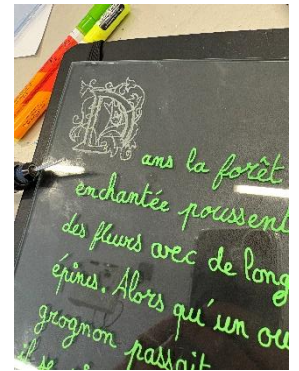 Dans la forêt
enchantée poussent
des fleurs avec de long
épines. Alors qu'un ou
grognon passait
il se